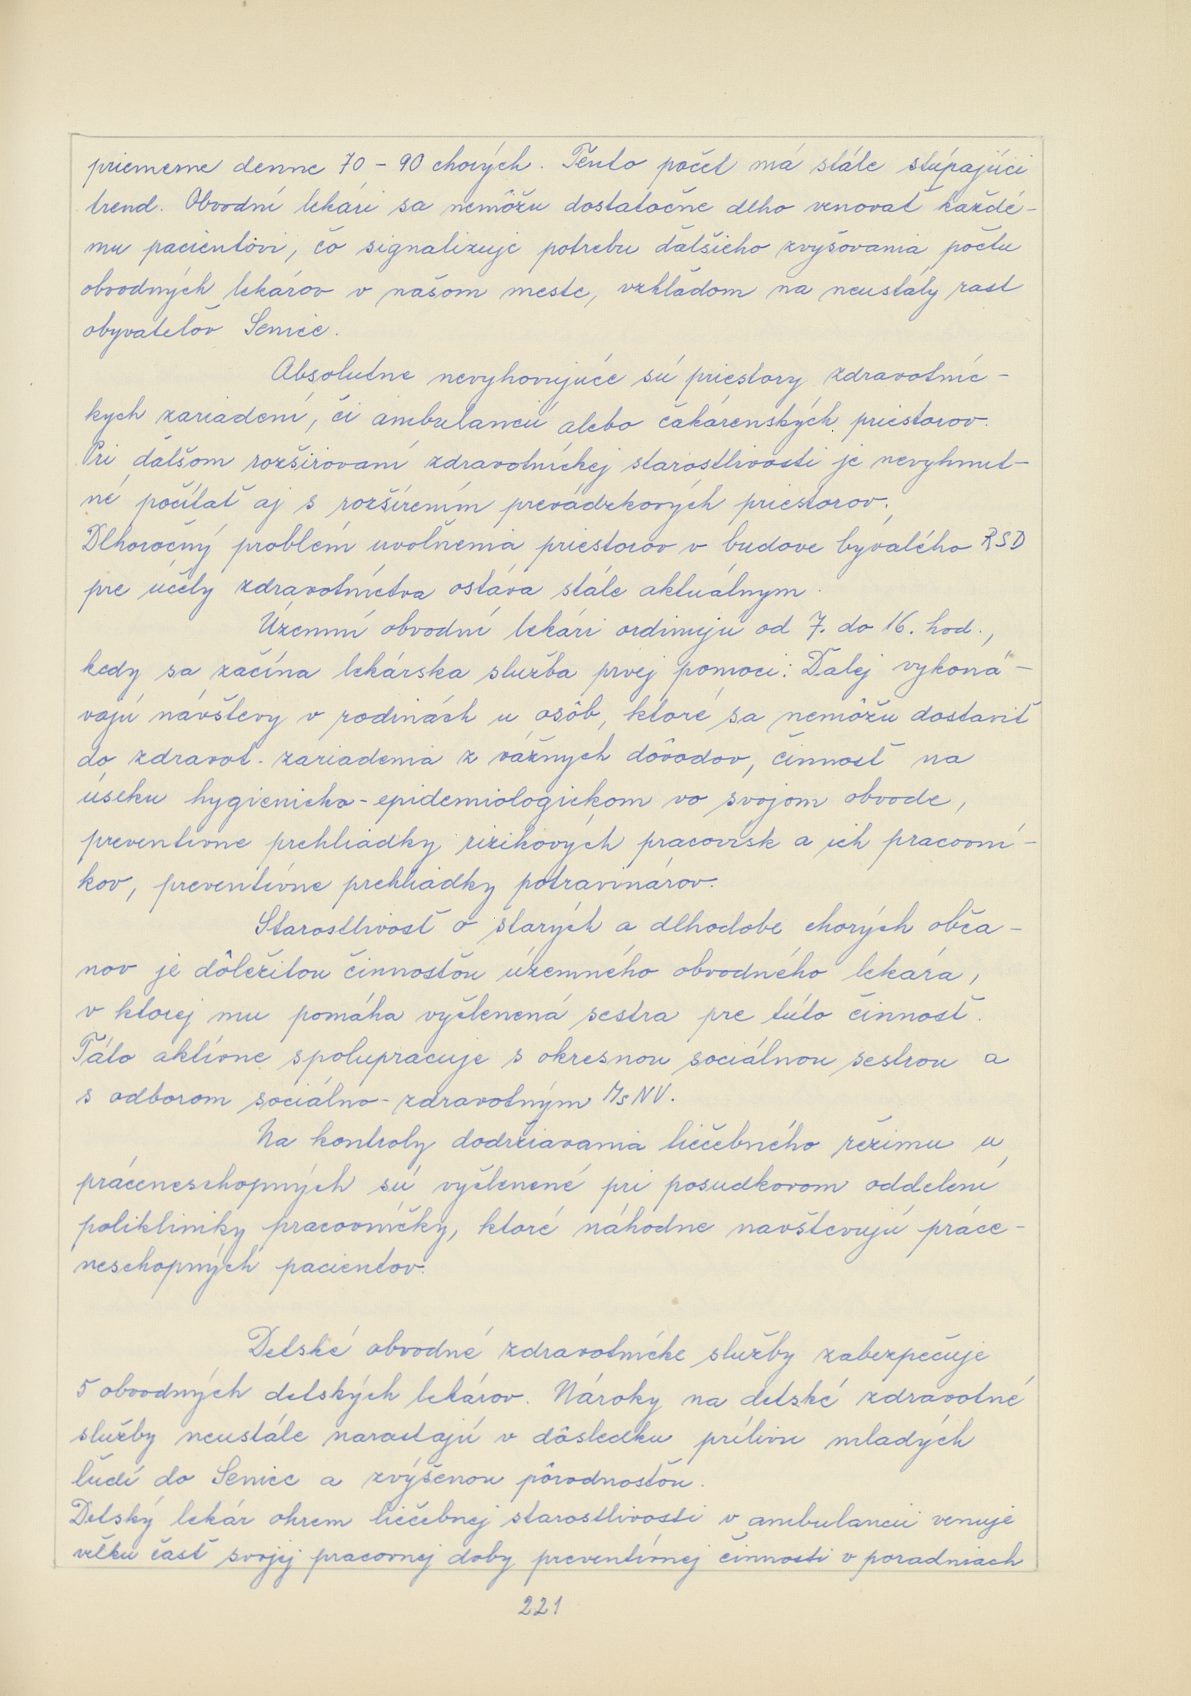 priemerne denne 70 - 90 chorých. Tento počet má stále stúpajúci
trend. Obvodní lekári sa nemôžu dostatočne dlho venovať každé-
mu pacientovi, čo signalizuje potrebu ďalšieho zvyšovania počtu
obvodných lekárov v našom meste, vzhľadom na neustály rast
obyvateľov Senice.
Absolutne nevyhovujúce sú priestory zdravotníc-
kych zariadení, či ambulancií alebo čakárenských priestorov.
Pri ďalšom rozširovaní zdravotníckej starostlivosti je nevyhnut-
né počítať aj s rozšírením prevádzkových priestorov.
Dlhoročný problém uvoľnenia priestorov v budove bývalého RSD
pre účely zdravotníctva ostáva stále aktuálnym.
Územní obvodní lekári ordinujú od 7. do 16. hod.,
kedy sa začína lekárska služba prvej pomoci. Ďalej vykoná-
vajú návštevy v rodinách u osôb, ktoré sa nemôžu dostaviť
do zdravot. zariadenia z vážnych dôvodov, činnosť na
úseku hygienicko-epidemiologickom vo svojom obvode,
preventívne prehliadky rizikových pracovísk a ich pracovní-
kov, preventívne prehliadky potravinárov.
Starostlivosť o starých a dlhodobe chorých obča-
nov je dôležitou činnosťou územného obvodného lekára,
v ktorej mu pomáha vyčlenená sestra pre túto činnosť.
Táto aktívne spolupracuje s okresnou sociálnou sestrou a
s odborom sociálno-zdravotným MsNV.
Na kontroly dodržiavania liečebného režimu u
práceneschopných sú vyčlenené pri posudkovom oddelení
polikliniky pracovníčky, ktoré náhodne navštevujú práce-
neschopných pacientov.
Detské obvodné zdravotnícke služby zabezpečuje
5 obvodných detských lekárov. Nároky na detské zdravotné
služby neustále narastajú v dôsledku prílivu mladých
ľudí do Senice a zvýšenou pôrodnosťou.
Detský lekár okrem liečebnej starostlivosti v ambulancii venuje
veľkú časť svojej pracovnej doby preventívnej činnosti v poradniach
221